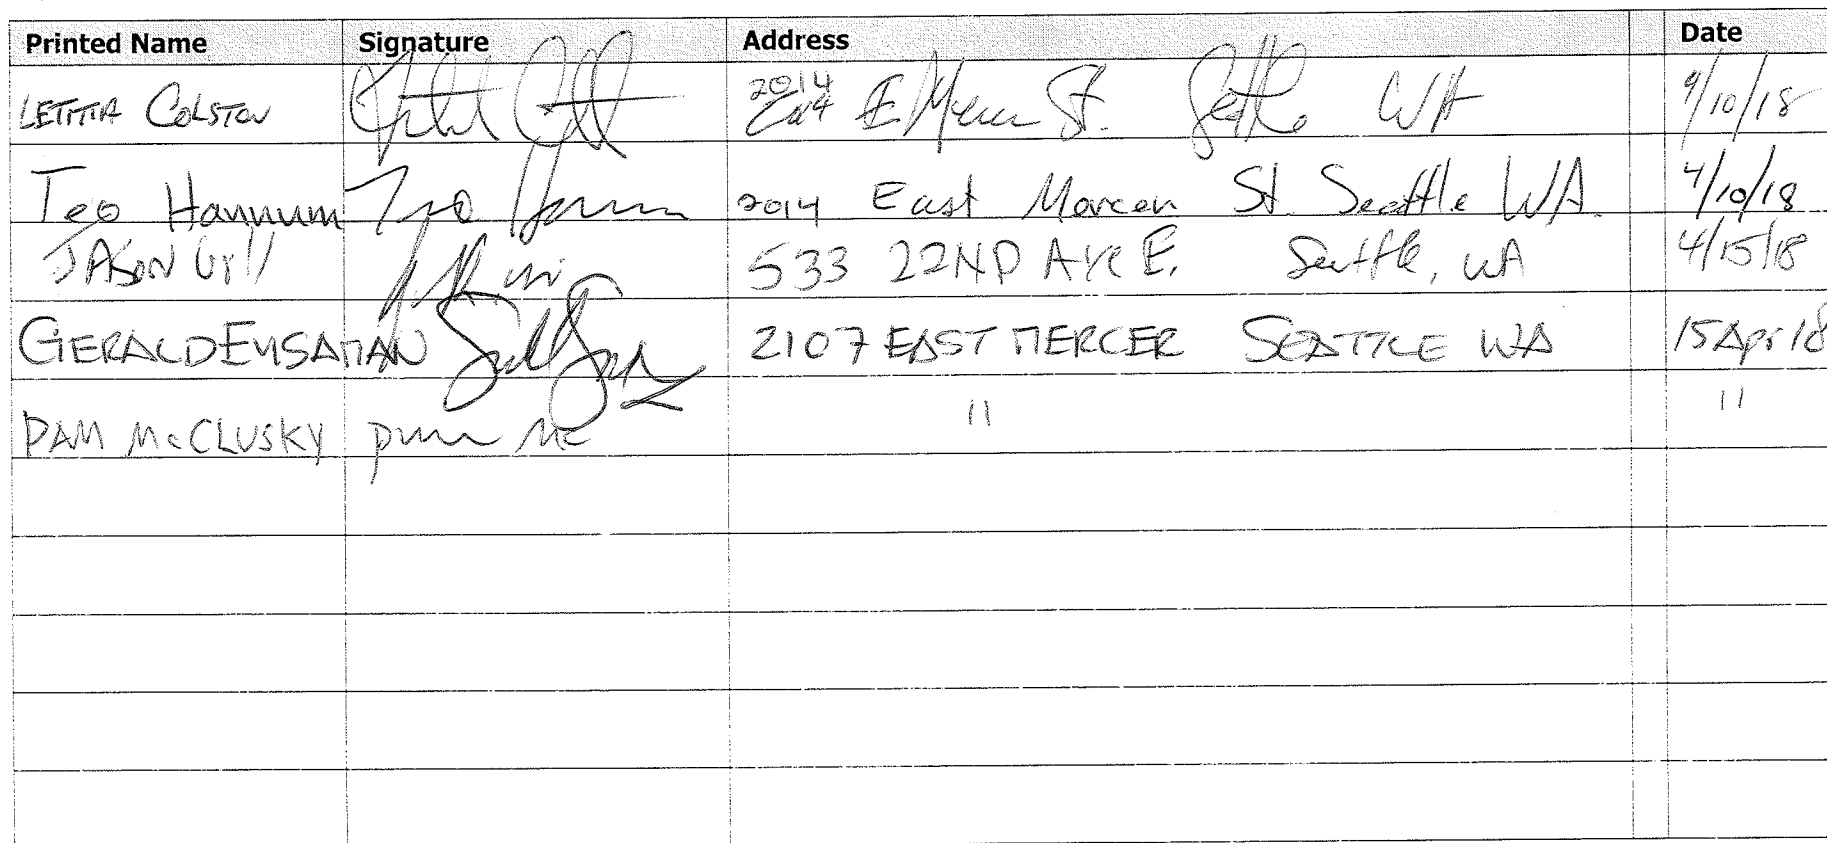 Printed Name Signature Address Date
LETITIA COLSTON 2014 E Mercer St. Seattle WA 4/10/18
Teo Hannum Teo Hannum 2014 East Mercer St. Seattle WA. 4/10/18
JASON Gill 533 22ND Ave E. Seattle, WA 4/15/18
GERALD EMSAMAN 2107 EAST MERCER SEATTLE WA 15 Apr 18
PAM McCLUSKY pam Mc " "